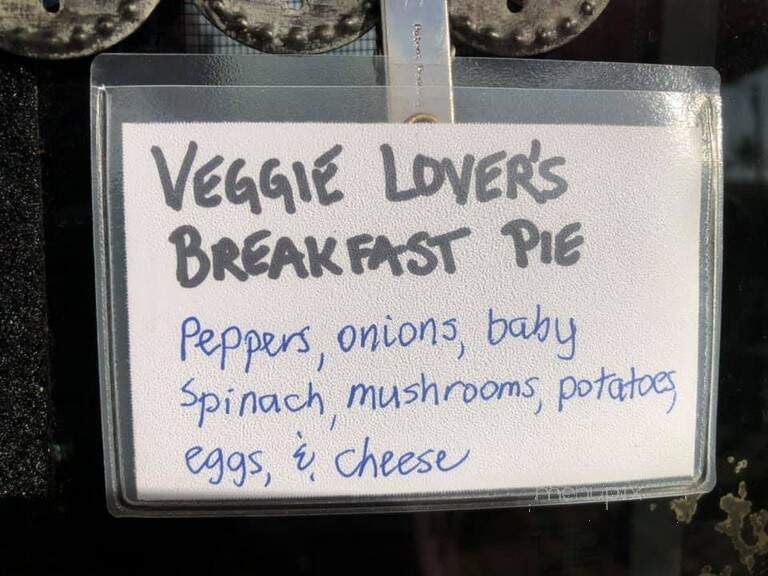 VEGGIE LOVER'S
BREAKFAST PIE
Peppers, onions, baby
Spinach, mushrooms, potatoes,
eggs, & cheese
menupix